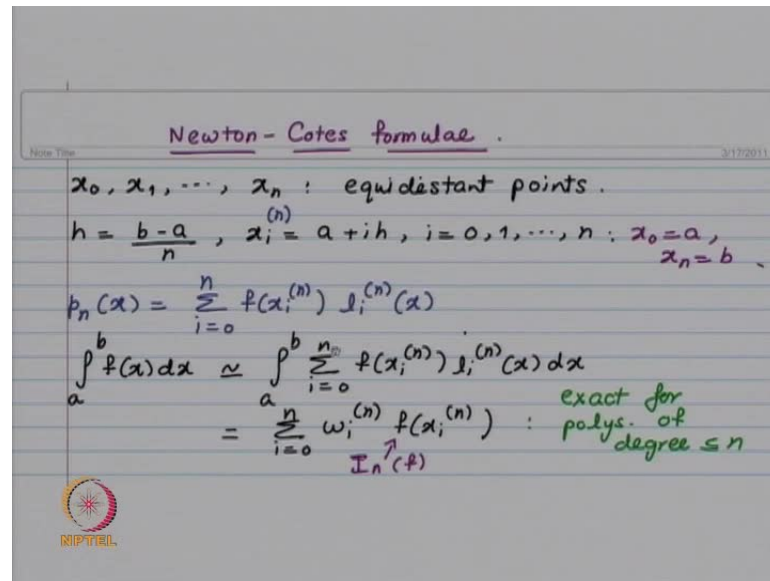 Newton-Cotes formulae.
Note Title
3/17/2011
x₀, x₁, ..., xₙ : equidistant points.
h = (b-a)/n , xᵢ⁽ⁿ⁾ = a + ih, i = 0, 1, ..., n : x₀ = a,
xₙ = b
pₙ(x) = Σᵢ₌₀ⁿ f(xᵢ⁽ⁿ⁾) lᵢ⁽ⁿ⁾(x)
∫ₐᵇ f(x) dx ≃ ∫ₐᵇ Σᵢ₌₀ⁿ f(xᵢ⁽ⁿ⁾) lᵢ⁽ⁿ⁾(x) dx
= Σᵢ₌₀ⁿ wᵢ⁽ⁿ⁾ f(xᵢ⁽ⁿ⁾) : exact for
polys. of
degree ≤ n
Iₙ(f)
NPTEL